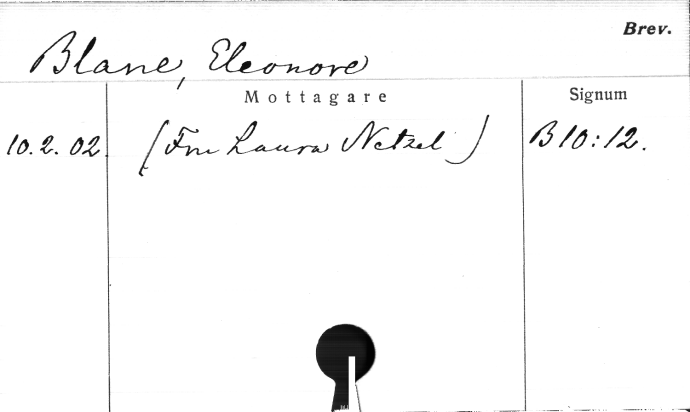 Brev.
Blane, Eleonore
Mottagare
Signum
10.2.02. (Fru Laura Netzel) B 10:12.